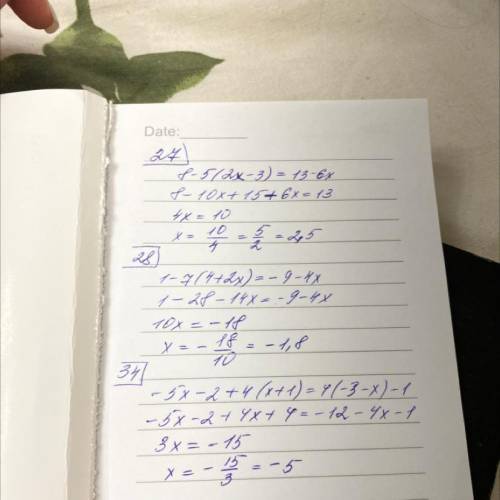 Date:
27
8-5(2x-3)=13-6x
8-10x+15+6x=13
4x=10
x=10/4=5/2=2,5
28
1-7(4+2x)=-9-4x
1-28-14x=-9-4x
10x=-18
x=-18/10=-1,8
34
-5x-2+4(x+1)=4(-3-x)-1
-5x-2+4x+4=-12-4x-1
3x=-15
x=-15/3=-5